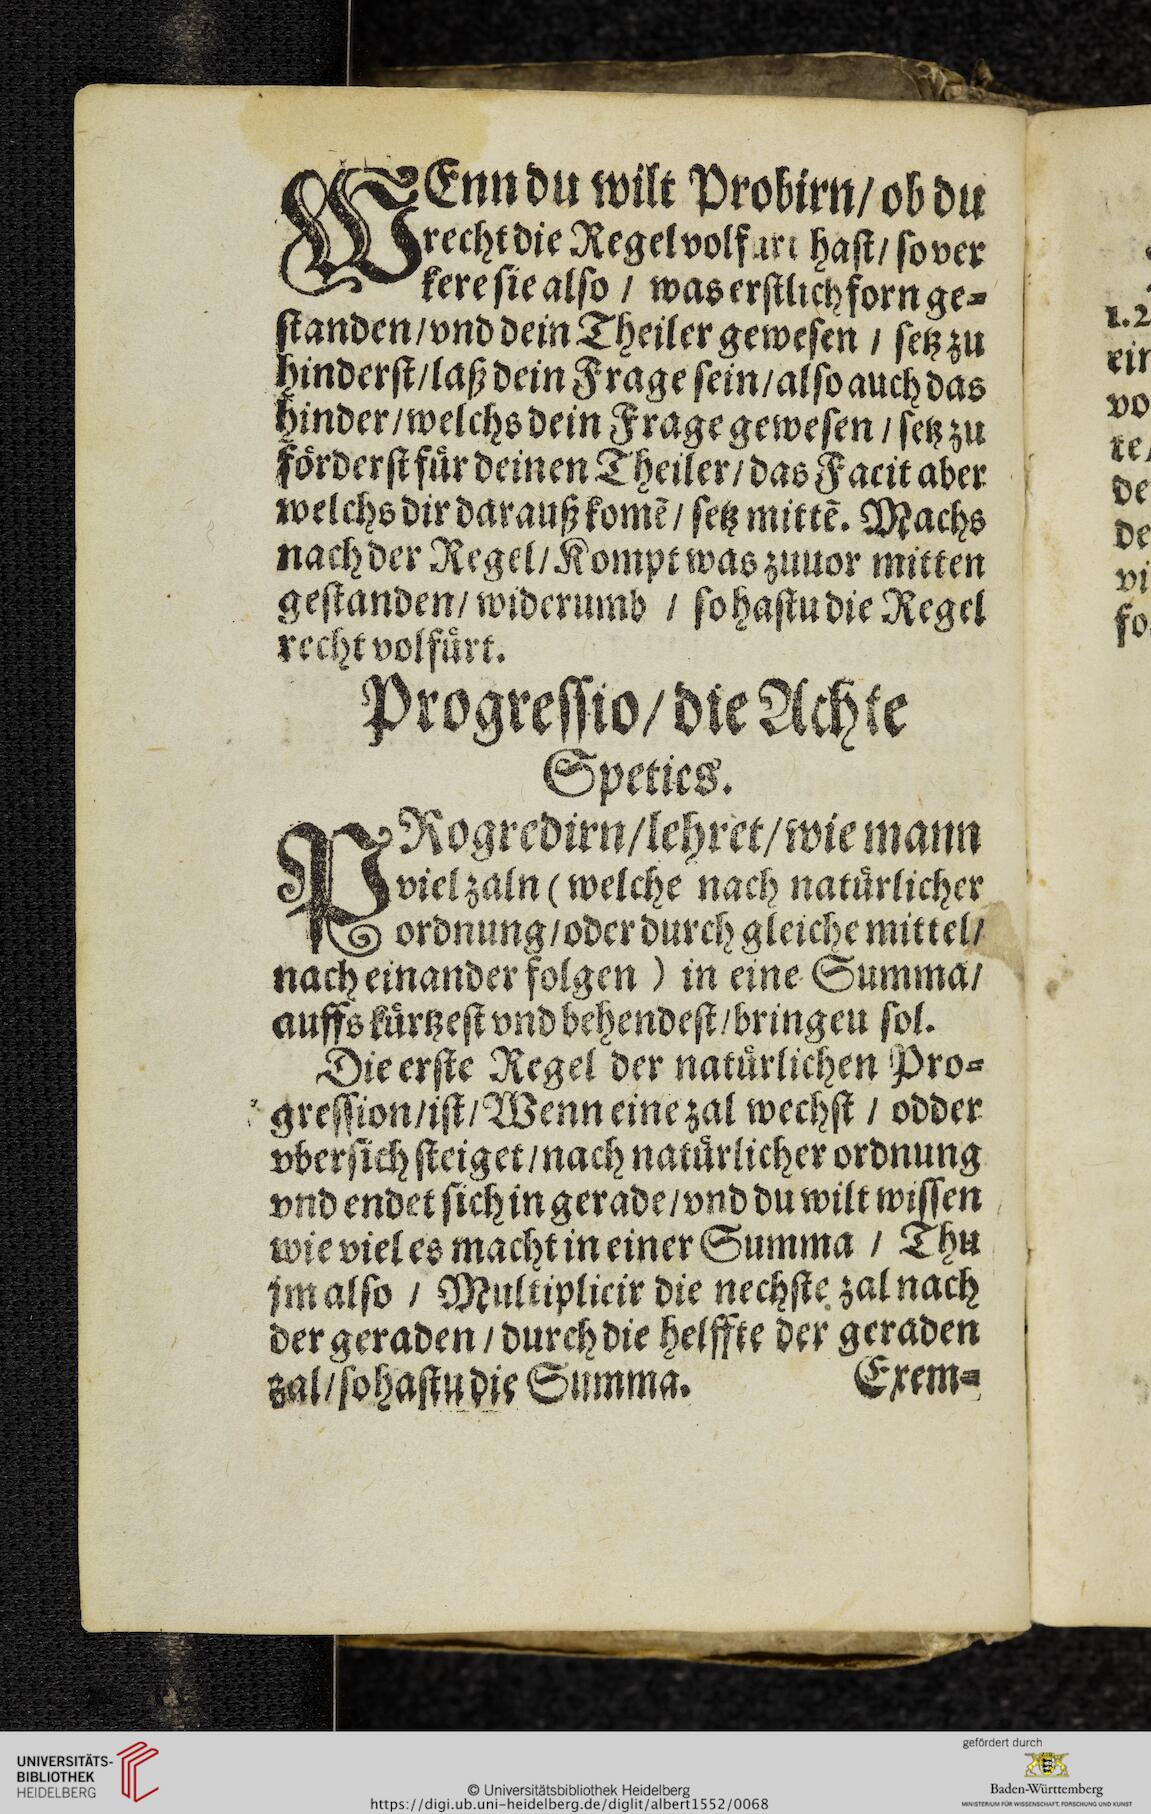 WEnn du wilt Probirn/ ob du
recht die Regel volfurt hast/ so ver
kere sie also / was erstlich forn ge=
standen/ vnd dein Theiler gewesen / setz zu
hinderst/ laß dein Frage sein/ also auch das
hinder/ welchs dein Frage gewesen / setz zu
förderst für deinen Theiler/ das Facit aber
welchs dir darauß komē/ setz mittē. Machs
nach der Regel/ Kompt was zuuor mitten
gestanden/ widerumb / so hastu die Regel
recht volfürt.
Progressio/ die Achte
Speties.
PRogredirn/ lehret/ wie mann
viel zaln ( welche nach natürlicher
ordnung/ oder durch gleiche mittel/
nach einander folgen ) in eine Summa/
auffs kürtzest vnd behendest/ bringeu sol.
Die erste Regel der natürlichen Pro=
gression/ ist/ Wenn eine zal wechst / odder
vbersich steiget/ nach natürlicher ordnung
vnd endet sich in gerade/ vnd du wilt wissen
wie viel es macht in einer Summa / Thu
jm also / Multiplicir die nechste zal nach
der geraden / durch die helffte der geraden
zal/ so hastu die Summa. Exem=
1.2
ein
vo
te/
de
de
vi
fo
UNIVERSITÄTS-
BIBLIOTHEK
HEIDELBERG
© Universitätsbibliothek Heidelberg
https://digi.ub.uni-heidelberg.de/diglit/albert1552/0068
gefördert durch
Baden-Württemberg
MINISTERIUM FÜR WISSENSCHAFT, FORSCHUNG UND KUNST